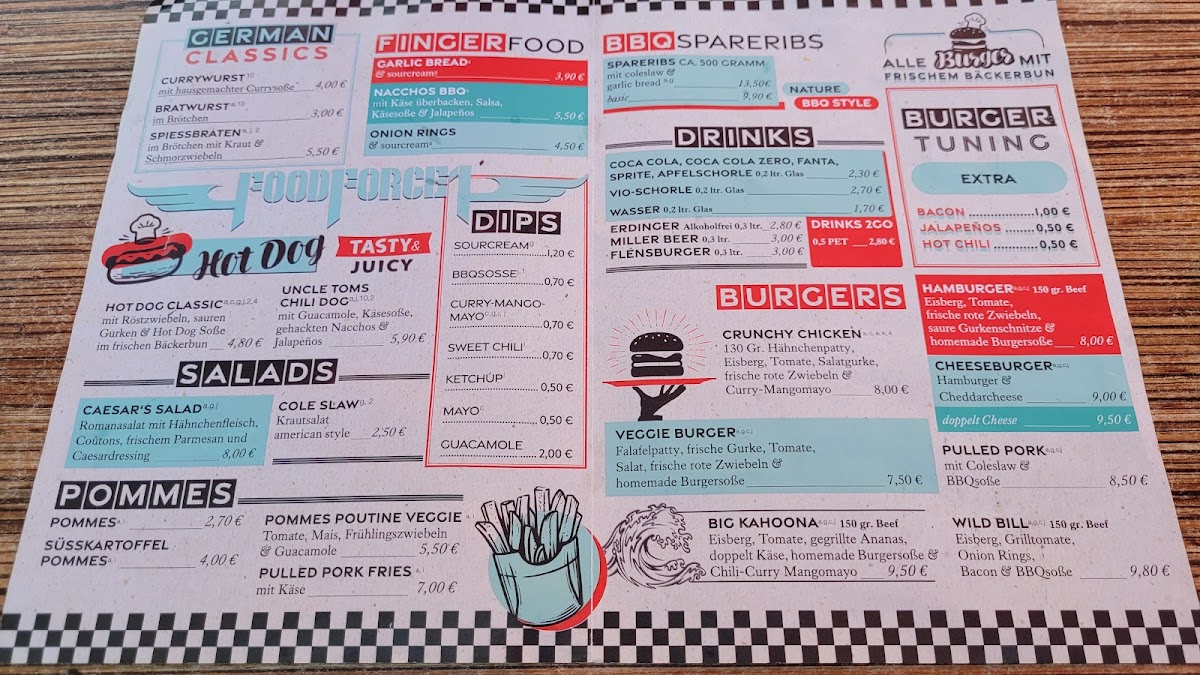 GERMAN
CLASSICS
CURRYWURST 10
mit hausgemachter Currysoße 4,00 €
BRATWURST a,10
im Brötchen 3,00 €
SPIESSBRATEN a,j,2
im Brötchen mit Kraut &
Schmorzwiebeln 5,50 €
FINGERFOOD
GARLIC BREAD
& sourcream g 3,90 €
NACCHOS BBQ
mit Käse überbacken, Salsa,
Käsesoße & Jalapeños 5,50 €
ONION RINGS
& sourcream g 4,50 €
FOODFORCE1
HOT DOG
TASTY &
JUICY
HOT DOG CLASSIC a,c,g,j,2,4
mit Röstzwiebeln, sauren
Gurken & Hot Dog Soße
im frischen Bäckerbun 4,80 €
UNCLE TOMS
CHILI DOG a,j,10,2
mit Guacamole, Käsesoße,
gehackten Nacchos &
Jalapeños 5,90 €
SALADS
CAESAR'S SALAD a,g,j
Romanasalat mit Hähnchenfleisch,
Coûtons, frischem Parmesan und
Caesardressing 8,00 €
COLE SLAW g, 2
Krautsalat
american style 2,50 €
DIPS
SOURCREAM g
1,20 €
BBQSOSSE
0,70 €
CURRY-MANGO-
MAYO
0,70 €
SWEET CHILI
0,70 €
KETCHUP
0,50 €
MAYO c
0,50 €
GUACAMOLE
2,00 €
POMMES
POMMES 2,70 €
SÜSSKARTOFFEL
POMMES 4,00 €
POMMES POUTINE VEGGIE
Tomate, Mais, Frühlingszwiebeln
& Guacamole 5,50 €
PULLED PORK FRIES
mit Käse 7,00 €
BBQSPARERIBS
SPARERIBS CA. 500 GRAMM
mit coleslaw &
garlic bread a,g 13,50€
basic 9,90 €
NATURE
BBQ STYLE
DRINKS
COCA COLA, COCA COLA ZERO, FANTA,
SPRITE, APFELSCHORLE 0,2 ltr. Glas 2,30 €
VIO-SCHORLE 0,2 ltr. Glas 2,70 €
WASSER 0,2 ltr. Glas 1,70 €
ERDINGER Alkoholfrei 0,3 ltr. 2,80 €
MILLER BEER 0,3 ltr. 3,00 €
FLENSBURGER 0,3 ltr. 3,00 €
DRINKS 2GO
0,5 PET 2,80 €
ALLE Burger MIT
FRISCHEM BÄCKERBUN
BURGER
TUNING
EXTRA
BACON ...............1,00 €
JALAPEÑOS ..........0,50 €
HOT CHILI ............0,50 €
BURGERS
CRUNCHY CHICKEN
130 Gr. Hähnchenpatty,
Eisberg, Tomate, Salatgurke,
frische rote Zwiebeln &
Curry-Mangomayo 8,00 €
HAMBURGER a,g,c,j 150 gr. Beef
Eisberg, Tomate,
frische rote Zwiebeln,
saure Gurkenschnitze &
homemade Burgersoße 8,00 €
CHEESEBURGER a,g,c,j
Hamburger &
Cheddarcheese 9,00 €
doppelt Cheese 9,50 €
VEGGIE BURGER a,g,c,j
Falafelpatty, frische Gurke, Tomate,
Salat, frische rote Zwiebeln &
homemade Burgersoße 7,50 €
PULLED PORK a,g,c,j
mit Coleslaw &
BBQsoße 8,50 €
BIG KAHOONA a,g,c,j 150 gr. Beef
Eisberg, Tomate, gegrillte Ananas,
doppelt Käse, homemade Burgersoße &
Chili-Curry Mangomayo 9,50 €
WILD BILL a,g,c,j 150 gr. Beef
Eisberg, Grilltomate,
Onion Rings,
Bacon & BBQsoße 9,80 €